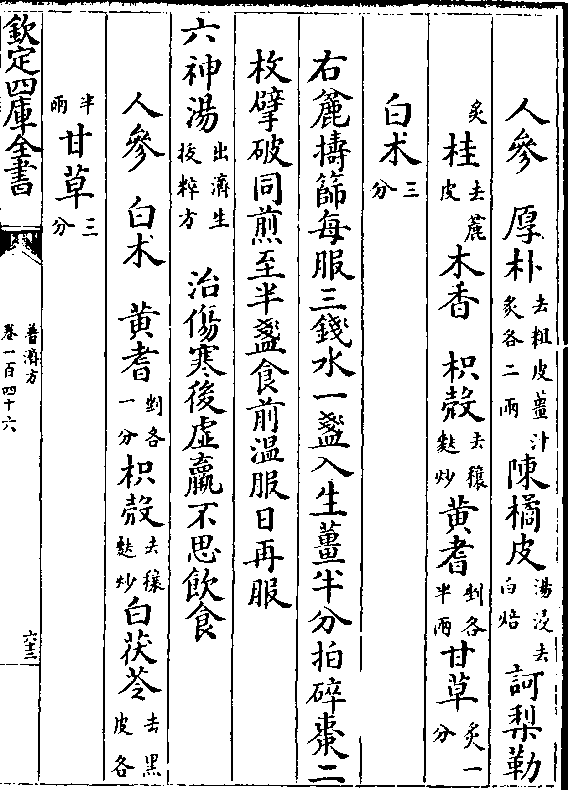 人參　厚朴去粗皮薑汁炙各二兩陳橘皮湯浸去白焙訶梨勒
炙桂去麄皮木香　枳殼去穰麩炒黃耆剉各半兩甘草炙一分
白术三分
右麄擣篩每服三錢水一盞入生薑半分拍碎棗二
枚擘破同煎至半盞食前溫服日再服
六神湯出濟生拔粹方　治傷寒後虛羸不思飲食
人參　白术　黃耆剉各一分枳殼去穰麩炒白茯苓去黑皮各
半兩甘草三分
欽定四庫全書
普濟方
卷一百四十六
六十三